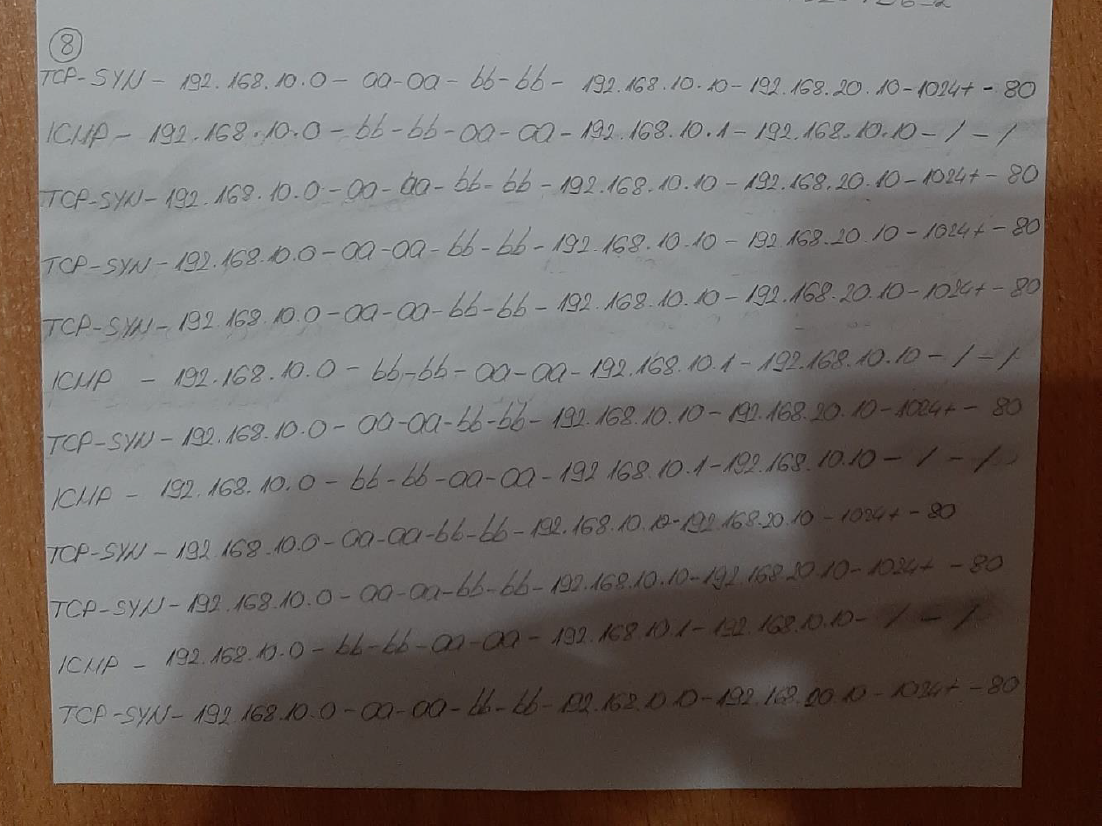 8
TCP-SYN - 192.168.10.0 - aa-aa - bb-bb - 192.168.10.10 - 192.168.20.10 - 1024+ - 80
ICMP - 192.168.10.0 - bb-bb - aa-aa - 192.168.10.1 - 192.168.10.10 - / - /
TCP-SYN - 192.168.10.0 - aa-aa - bb-bb - 192.168.10.10 - 192.168.20.10 - 1024+ - 80
TCP-SYN - 192.168.10.0 - aa-aa - bb-bb - 192.168.10.10 - 192.168.20.10 - 1024+ - 80
TCP-SYN - 192.168.10.0 - aa-aa - bb-bb - 192.168.10.10 - 192.168.20.10 - 1024+ - 80
ICMP - 192.168.10.0 - bb-bb - aa-aa - 192.168.10.1 - 192.168.10.10 - / - /
TCP-SYN - 192.168.10.0 - aa-aa - bb-bb - 192.168.10.10 - 192.168.20.10 - 1024+ - 80
ICMP - 192.168.10.0 - bb-bb - aa-aa - 192.168.10.1 - 192.168.10.10 - / - /
TCP-SYN - 192.168.10.0 - aa-aa - bb-bb - 192.168.10.10 - 192.168.20.10 - 1024+ - 80
TCP-SYN - 192.168.10.0 - aa-aa - bb-bb - 192.168.10.10 - 192.168.20.10 - 1024+ - 80
ICMP - 192.168.10.0 - bb-bb - aa-aa - 192.168.10.1 - 192.168.10.10 - / - /
TCP-SYN - 192.168.10.0 - aa-aa - bb-bb - 192.168.10.10 - 192.168.20.10 - 1024+ - 80